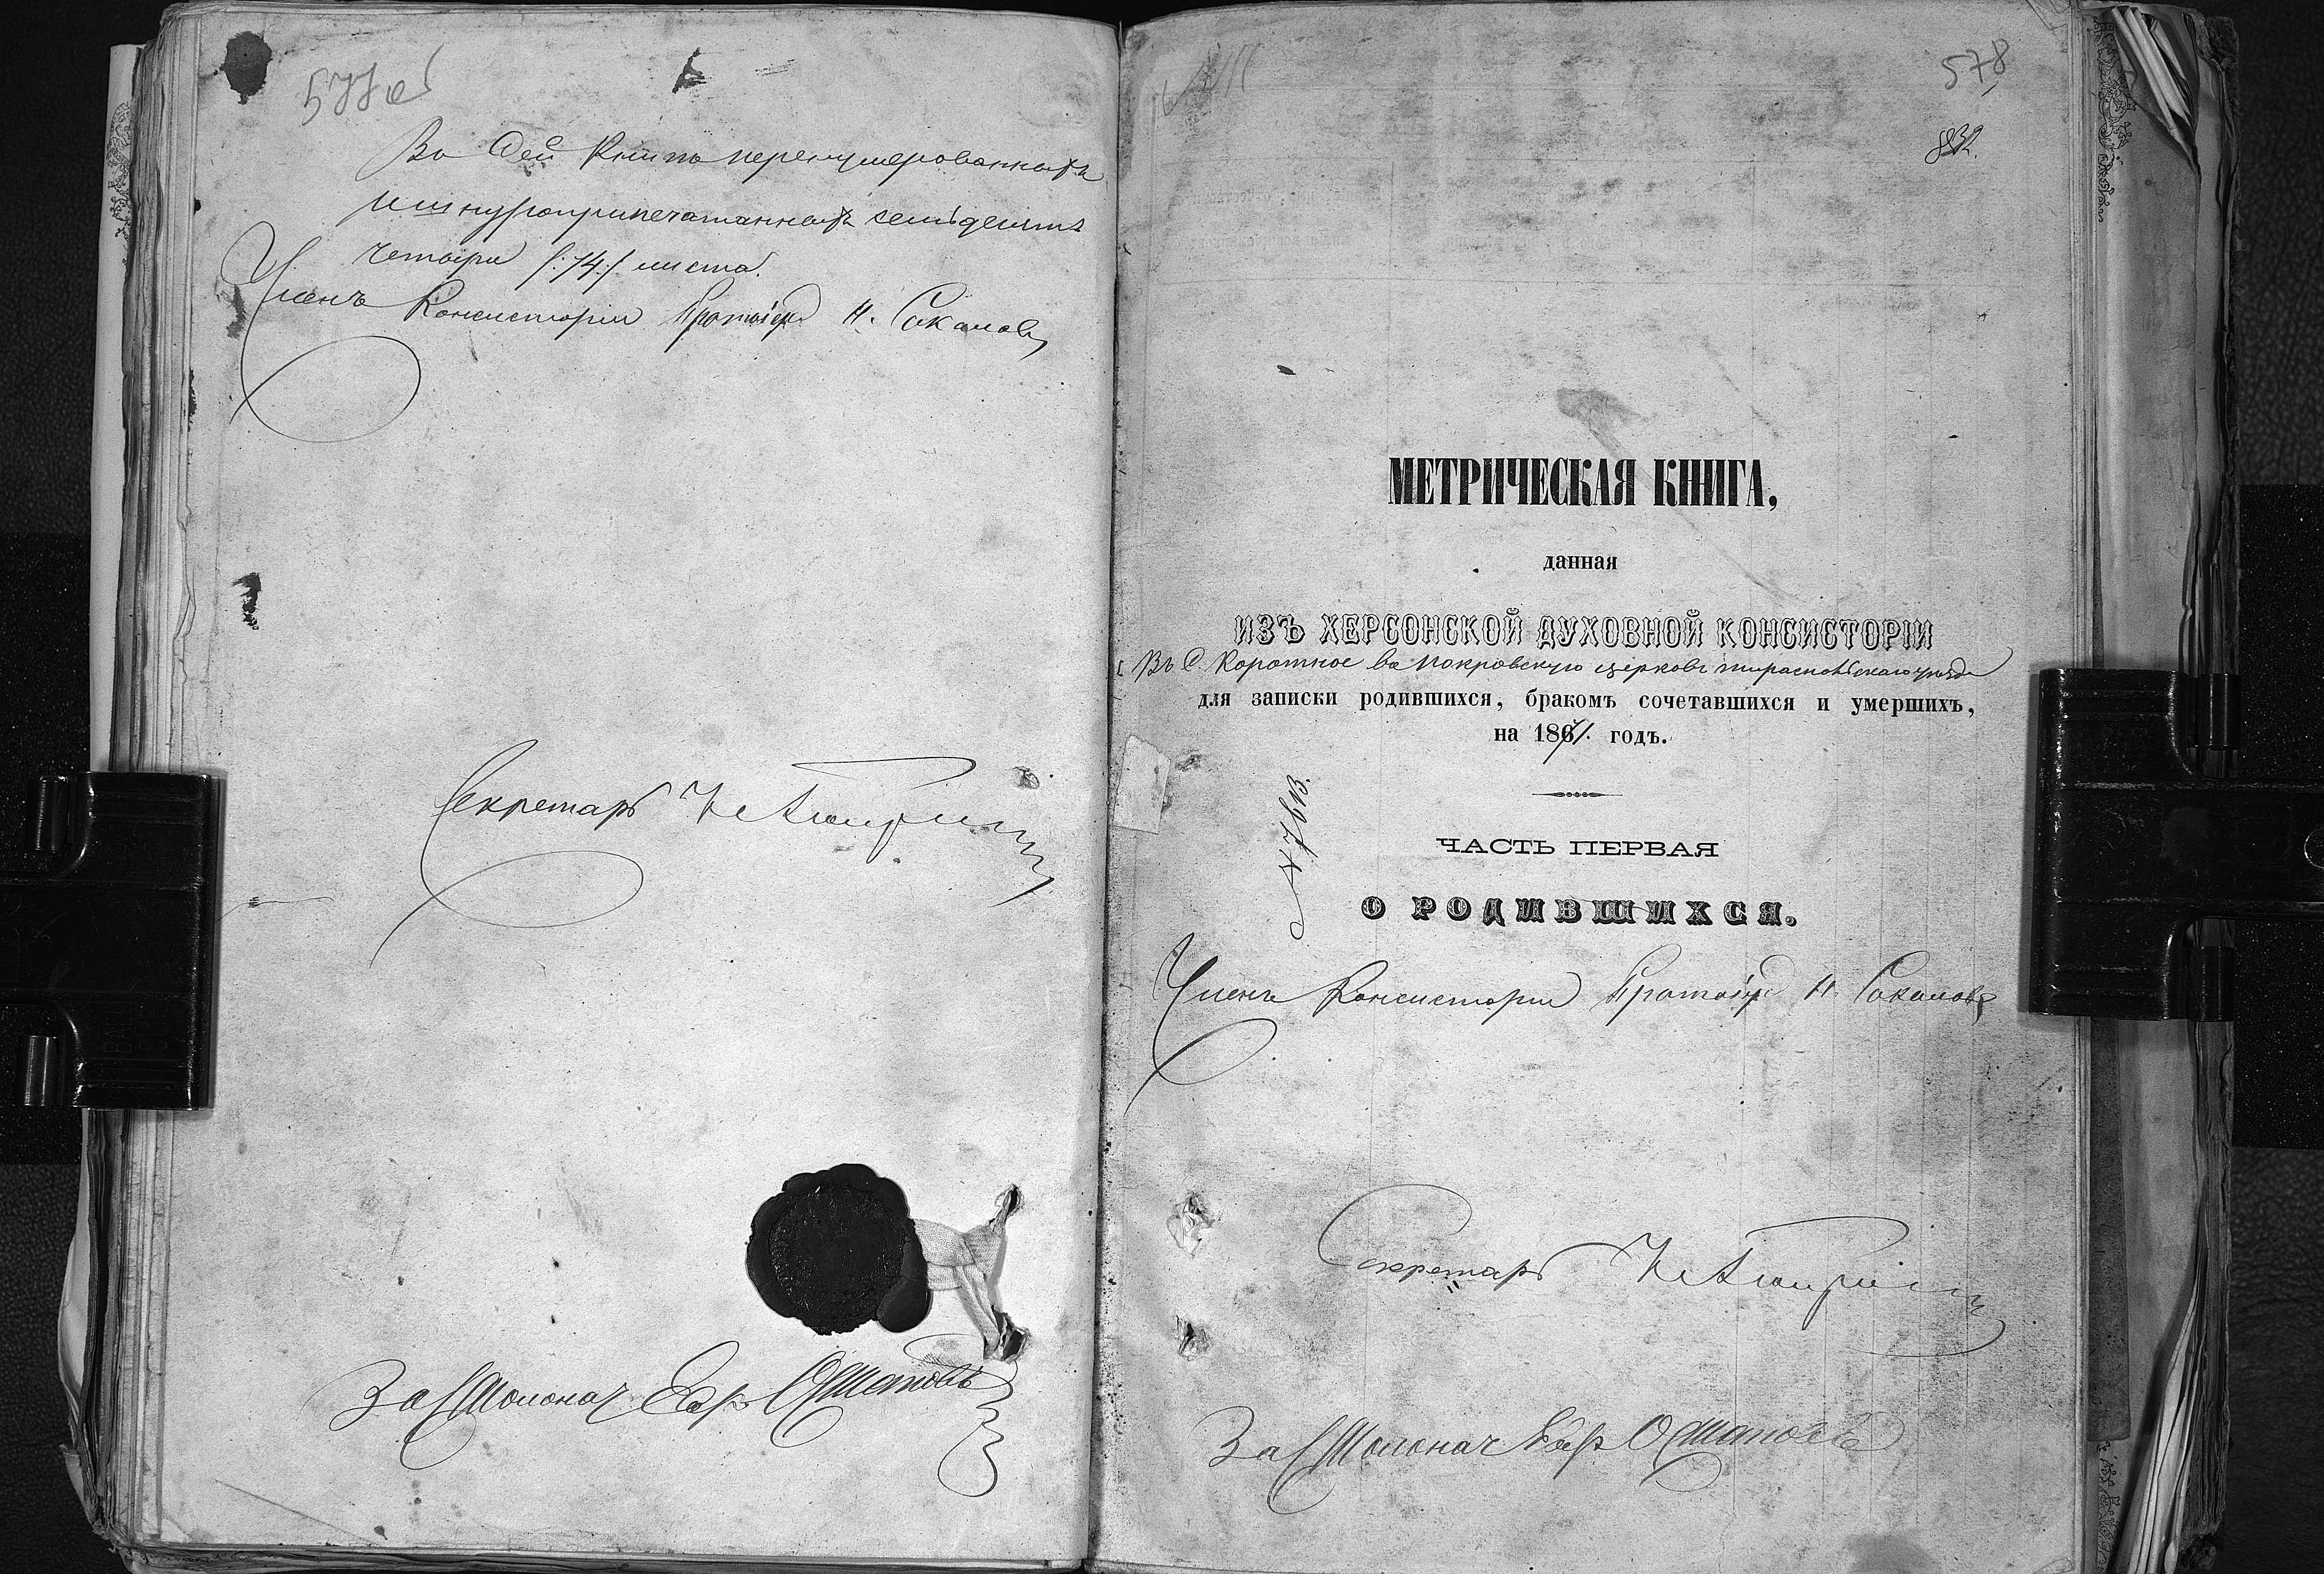 577 об
Во Сей Книгѣ перенумерованныхъ
и шнуроприпечатанныхъ семьдесятъ
четыри /:74:/ листа.
Членъ Консисторіи Протоіер Н. Соколовъ
Секретарь
За Столонач Егр
578
832.
МЕТРИЧЕСКАЯ КНИГА,
данная
ИЗЪ ХЕРСОНСКОЙ ДУХОВНОЙ КОНСИСТОРІИ
Въ С. Коротное во Покровскую церковь тираспольскаго уѣзда
для записки родившихся, бракомъ сочетавшихся и умершихъ,
на 1871. годъ.
ЧАСТЬ ПЕРВАЯ
О РОДИВШИХСЯ.
Членъ Консисторіи Протоіер Н. Соколовъ
Секретарь
За Столонач